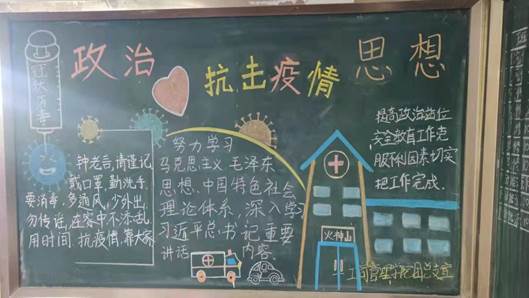 政治
抗击疫情
思想
钟老言,请谨记
戴口罩,勤洗手
要消毒,多通风,少外出
勿传谣,在家中不添乱
用时间 抗疫情,靠大家
努力学习
马克思主义 毛泽东
思想、中国特色社会
理论体系,深入学
习近平总书记重要
讲话 内容
提高政治站位
安全教育工作
把工作完成.
火神山